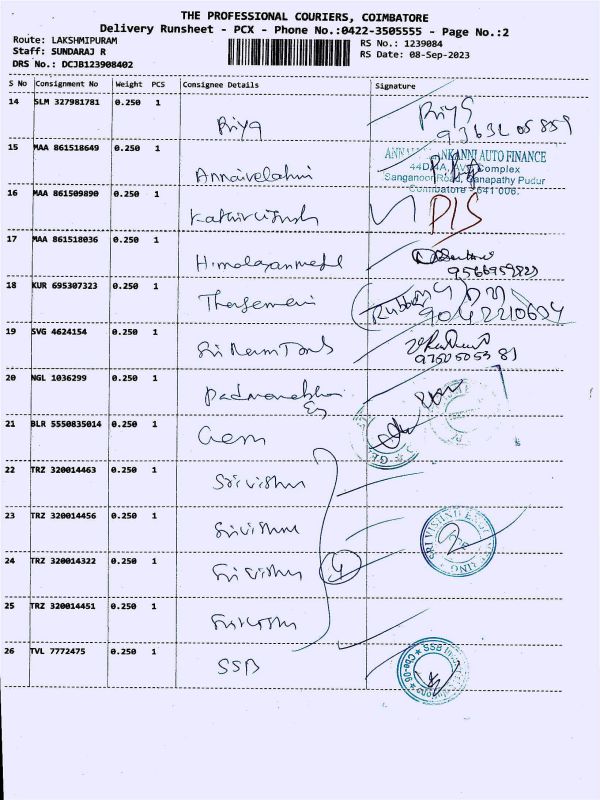 THE PROFESSIONAL COURIERS, COIMBATORE
Delivery Runsheet - PCX - Phone No.:0422-3505555 - Page No.:2
Route: LAKSHMIPURAM
Staff: SUNDARAJ R
DRS No.: DCJB123908402
RS No.: 1239084
RS Date: 08-Sep-2023
S No Consignment No Weight PCS Consignee Details Signature
14 SLM 327981781 0.250 1 Priya Priya
15 MAA 861518649 0.250 1 Annaivelahni
AUTO FINANCE
Complex
Sanganoor Road, Ganapathy Pudur
Coimbatore - 641 006.
16 MAA 861509890 0.250 1
17 MAA 861518036 0.250 1
9566959823
18 KUR 695307323 0.250 1
9042210604
19 SVG 4624154 0.250 1 Sri Ram
9750505381
20 NGL 1036299 0.250 1
21 BLR 5550835014 0.250 1 Gem
22 TRZ 320014463 0.250 1 Sri vishnu
23 TRZ 320014456 0.250 1 Sri vishnu
SRI VISHNU
24 TRZ 320014322 0.250 1 Sri vishnu 4
25 TRZ 320014451 0.250 1 Sri vishnu
26 TVL 7772475 0.250 1 SSB
SSB